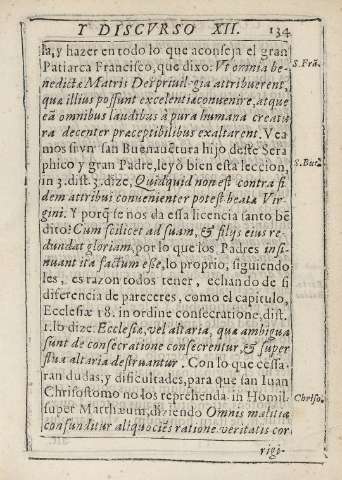 Y DISCVRSO XII. 134
la, y hazer en todo lo que aconseja el gran
Patiarca Francisco, que dixo. Vt omnia be- S. Frã.
nedictæ Matris Dei priuil-gia attribuerent,
quæ illius possunt excelentiæ conuenire, atque
eã omnibus laudibus à pura humana creatu
ra decenter præceptibilibus exaltarent. Vea
mos si vn san Buenauẽtura hijo deste Sera
phico y gran Padre, leyò bien esta leccion, S. Bue.
in 3. dist. 3. dize, Quidquid non est contra fi
dem attribui conuenienter potest beatæ Vir-
gini. Y porq̃ se nos da essa licencia santo bẽ
dito? Cum scilicet ad suam, & filij eius re-
dundat gloriam, por lo que los Padres insi-
nuant ita factum esse, lo proprio, siguiendo
les, es razon todos tener, echando de si
diferencia de pareceres, como el capitulo,
Ecclesiæ 18. in ordine consecratione, dist.
1. lo dize. Ecclesiæ, vel altaria, quæ ambigua
sunt de consecratione consecrentur, & super
flua altaria destruantur. Con lo que cessa-
ran dudas, y dificultades, para que san Iuan
Chrisostomo no los reprehenda in Homil. Chriso.
super Matthæum, diziendo Omnis malitia
confunditur aliquocies ratione veritatis cor
rigi-